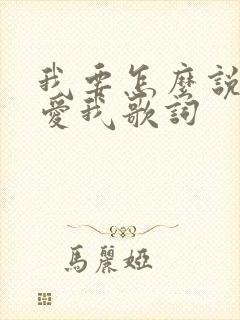 我要怎麼說
愛我歌詞
馬麗婭